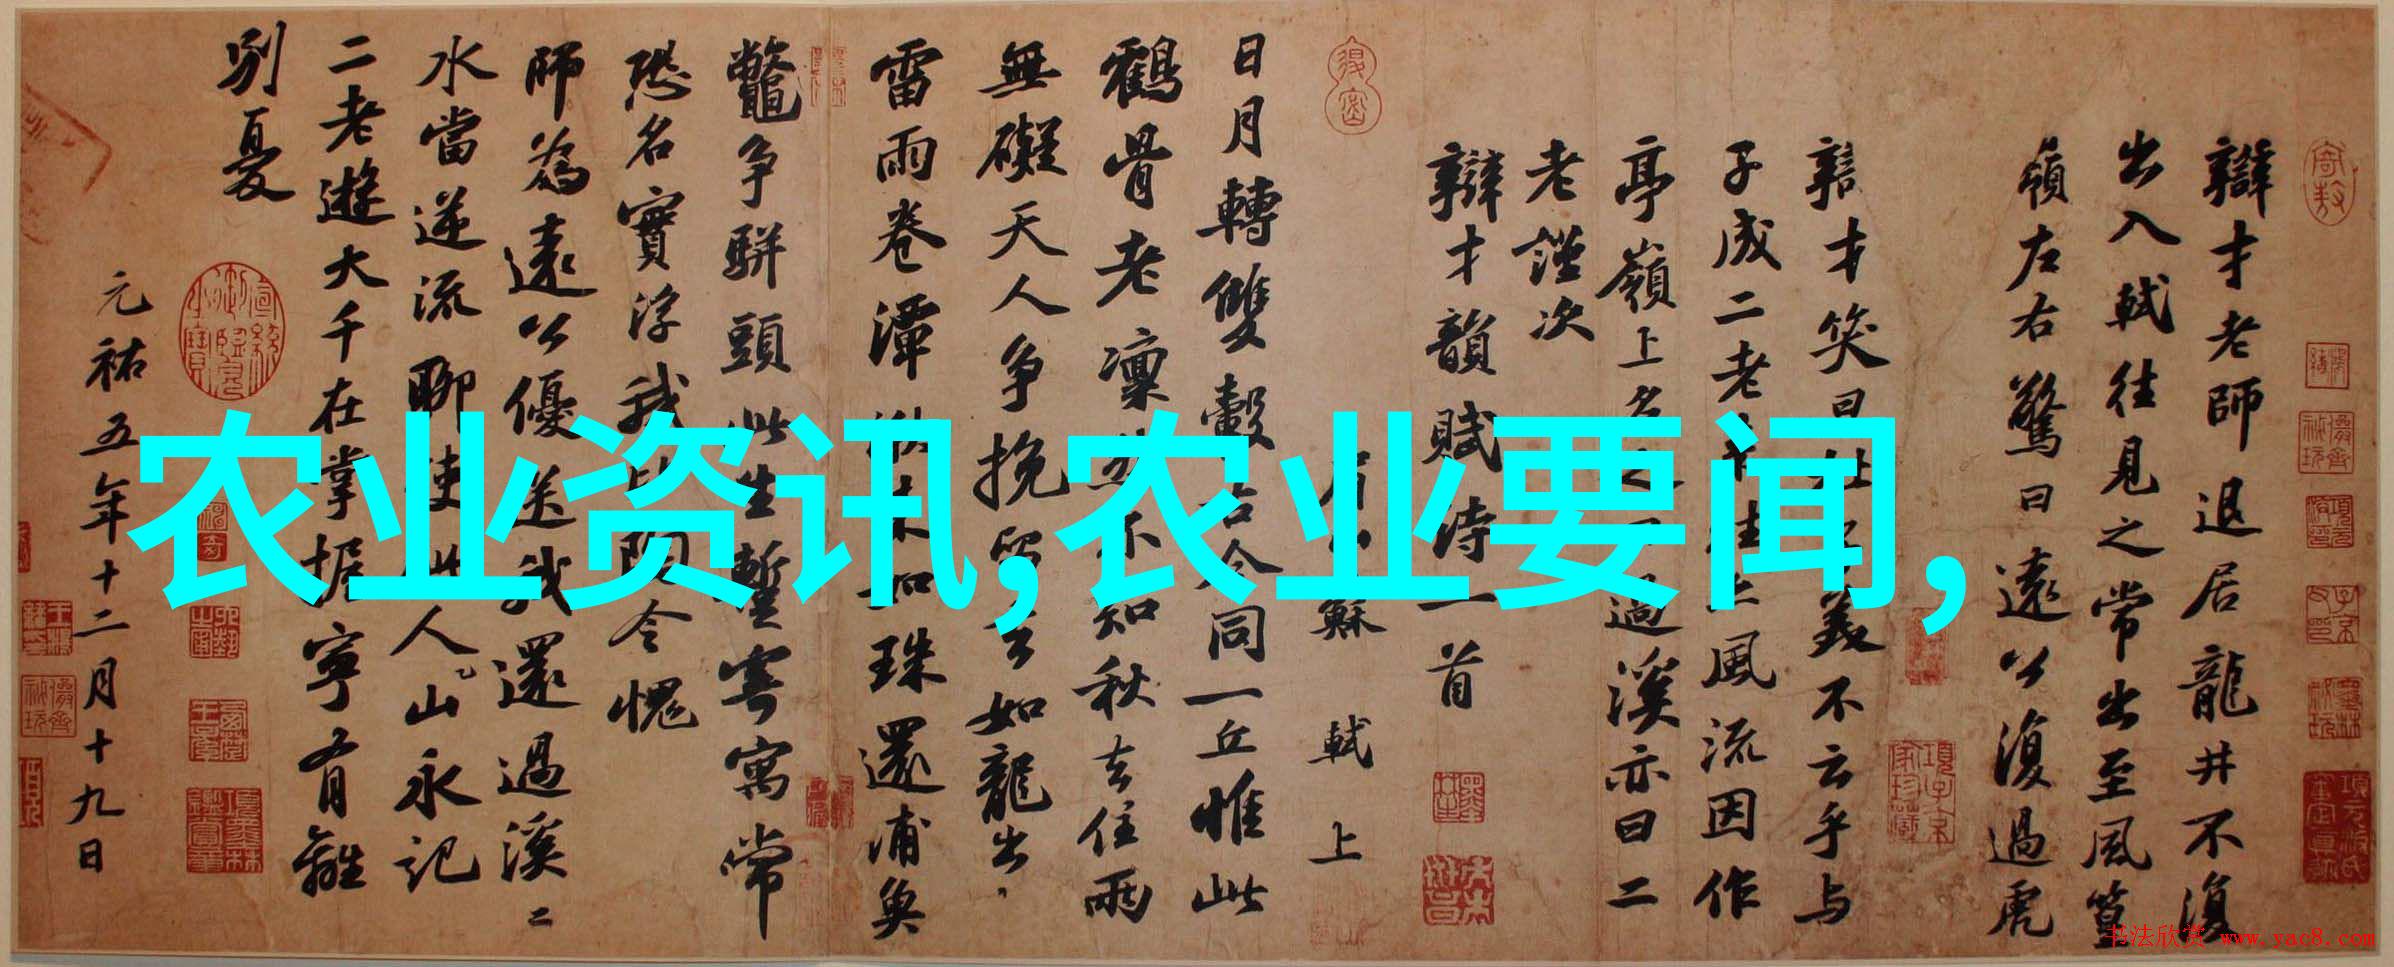 辯才老師退居龍井不復
出入軾往見之常出至風篁
嶺左右驚曰遠公復過虎
辯才笑曰杜子美不云乎与
子成二老來往亦風流因作
亭嶺上名之曰過溪亦曰二
老謹次
辯才韻賦詩一首
眉山蘇軾上
日月轉雙轂古今同一丘惟此
鶴骨老凜然不知秋去住兩
無礙天人爭挽留去如龍出
雷雨卷潭湫來如珠還浦魚
鼈爭駢頭此生暫寄寓常
恐名實浮我比陶令愧
師為遠公優送我還過溪二
水當逆流聊使此人山永記
二老遊大千在掌握寧有離
別憂
元祐五年十二月十九日
农业资讯,农业要闻,
书法欣赏 www.yac8.com